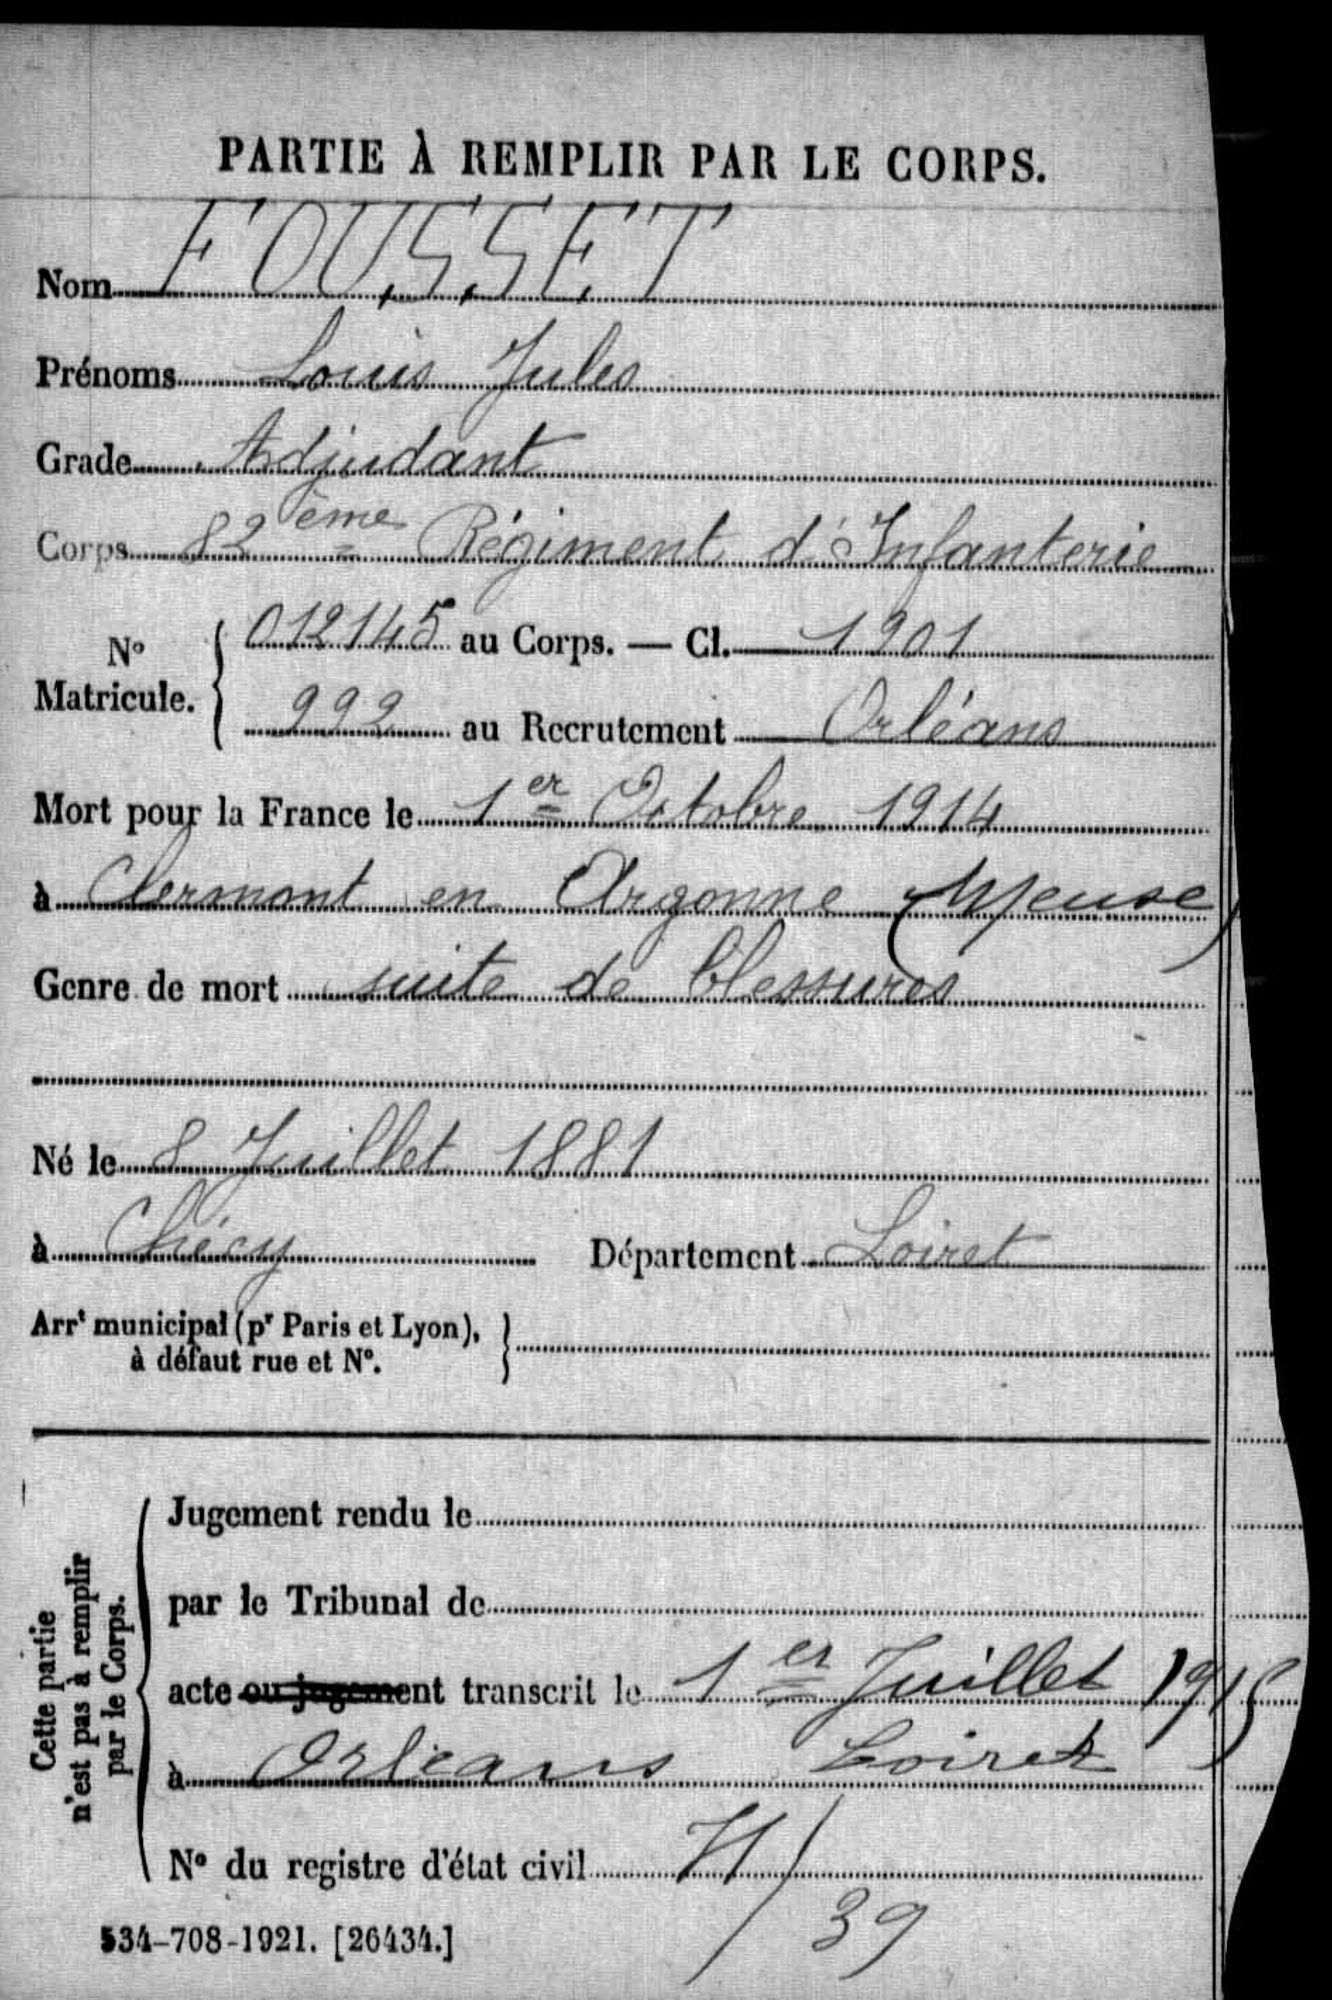 PARTIE À REMPLIR PAR LE CORPS.
Nom FOUSSET
Prénoms Louis Jules
Grade Adjudant
Corps 82ème Régiment d'Infanterie
No Matricule. { 012145 au Corps. — Cl. 1901
992 au Recrutement Orléans
Mort pour la France le 1er Octobre 1914
à Clermont en Argonne (Meuse)
Genre de mort suite de blessures
Né le 8 Juillet 1881
à Chécy Département Loiret
Arrt municipal (pr Paris et Lyon), }
à défaut rue et No.
Cette partie
n'est pas à remplir
par le Corps.
Jugement rendu le
par le Tribunal de
acte ou jugement transcrit le 1er Juillet 1915
à Orléans Loiret
No du registre d'état civil
/ 39
534-708-1921. [26434.]